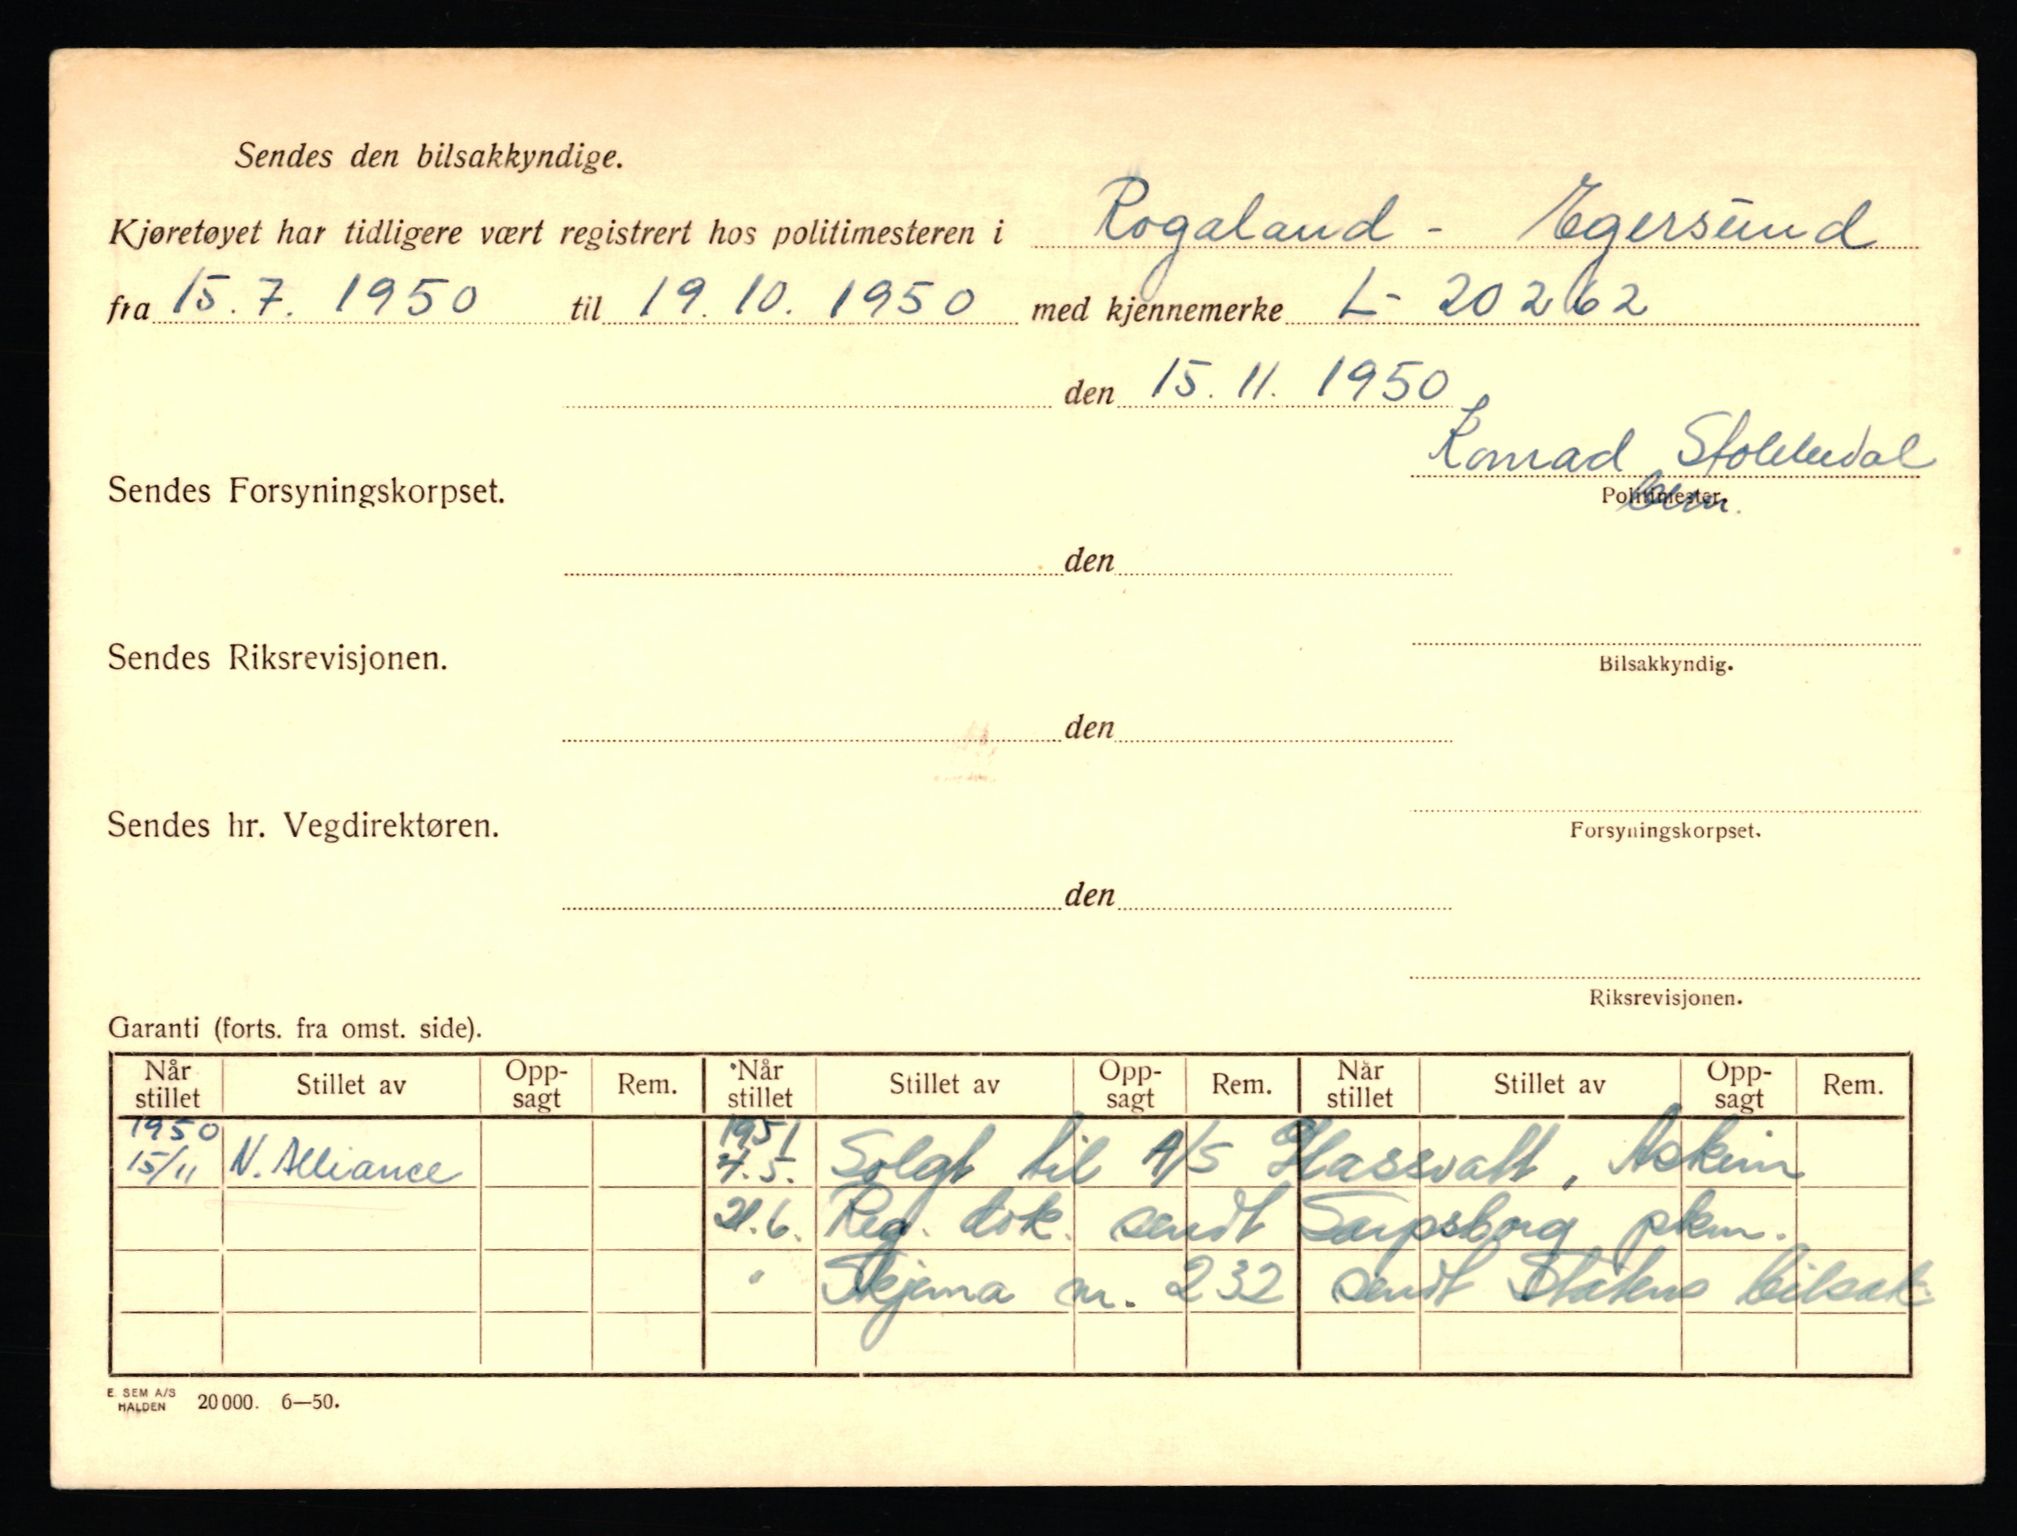 Sendes den bilsakkyndige.
Kjøretøyet har tidligere vært registrert hos politimesteren i Rogaland - Egersund
fra 15.7. 1950 til 19.10. 1950 med kjennemerke L- 20262
den 15.11. 1950
Konrad Stokkedal
Sendes Forsyningskorpset.
Politimester.
den
Sendes Riksrevisjonen.
Bilsakkyndig.
den
Sendes hr. Vegdirektøren.
Forsyningskorpset.
den
Riksrevisjonen.
Garanti (forts. fra omst. side).
Når stillet Stillet av Opp-sagt Rem. Når stillet Stillet av Opp-sagt Rem. Når stillet Stillet av Opp-sagt Rem.
1950 1951
15/11 N. Alliance 7.5. Solgt til A/S Glassvatt, Askim
21.6. Reg. dok. sendt Sarpsborg pkm.
" Skjema nr. 232 sendt Statens bilsak.
E. SEM A/S
HALDEN 20000. 6—50.